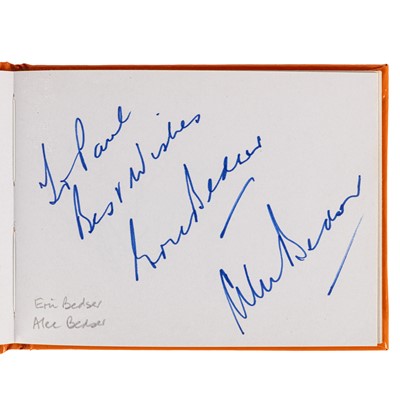 To Paul
Best Wishes
Eric Bedser
Alec Bedser
Eric Bedser
Alec Bedser